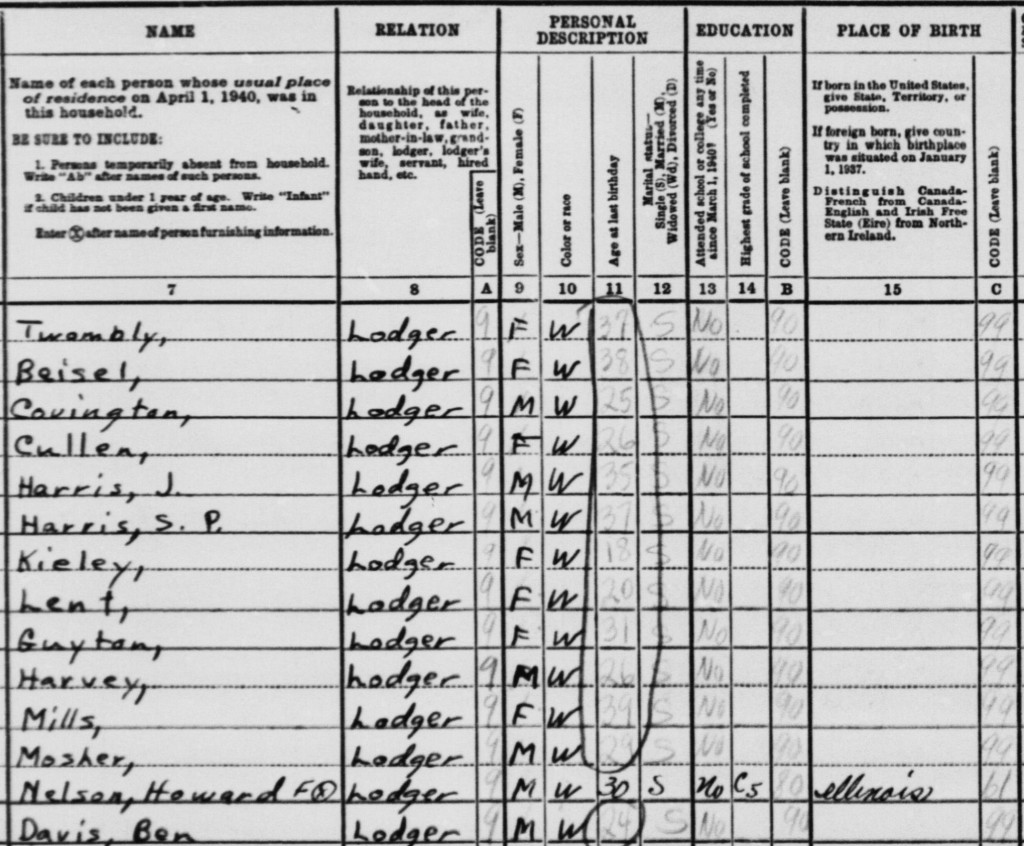 NAME RELATION PERSONAL DESCRIPTION EDUCATION PLACE OF BIRTH
Name of each person whose usual place of residence on April 1, 1940, was in this household.
BE SURE TO INCLUDE:
1. Persons temporarily absent from household. Write "Ab" after names of such persons.
2. Children under 1 year of age. Write "Infant" if child has not been given a first name.
Enter ⓧ after name of person furnishing information.
Relationship of this person to the head of the household, as wife, daughter, father, mother-in-law, grandson, lodger, lodger's wife, servant, hired hand, etc.
CODE (Leave blank)
Sex—Male (M), Female (F)
Color or race
Age at last birthday
Marital status—Single (S), Married (M), Widowed (Wd), Divorced (D)
Attended school or college any time since March 1, 1940? (Yes or No)
Highest grade of school completed
CODE (Leave blank)
If born in the United States, give State, Territory, or possession.
If foreign born, give country in which birthplace was situated on January 1, 1937.
Distinguish Canada-French from Canada-English and Irish Free State (Eire) from Northern Ireland.
CODE (Leave blank)
7 8 A 9 10 11 12 13 14 B 15 C
Twombly, Lodger 9 F W 37 S No 90 99
Beisel, Lodger 9 F W 38 S No 90 99
Covington, Lodger 9 M W 25 S No 90 99
Cullen, Lodger 9 F W 26 S No 90 99
Harris, J. Lodger 9 M W 35 S No 90 99
Harris, S. P. Lodger 9 M W 37 S No 90 99
Kieley, Lodger 9 F W 18 S No 90 99
Lent, Lodger 9 F W 20 S No 90 99
Guyton, Lodger 9 F W 31 S No 90 99
Harvey, Lodger 9 M W 26 S No 90 99
Mills, Lodger 9 F W 39 S No 90 99
Mosher, Lodger 9 M W 29 S No 90 99
Nelson, Howard F ⓧ Lodger 9 M W 30 S No C5 80 Illinois 61
Davis, Ben Lodger 9 M W 24 S No 90 99